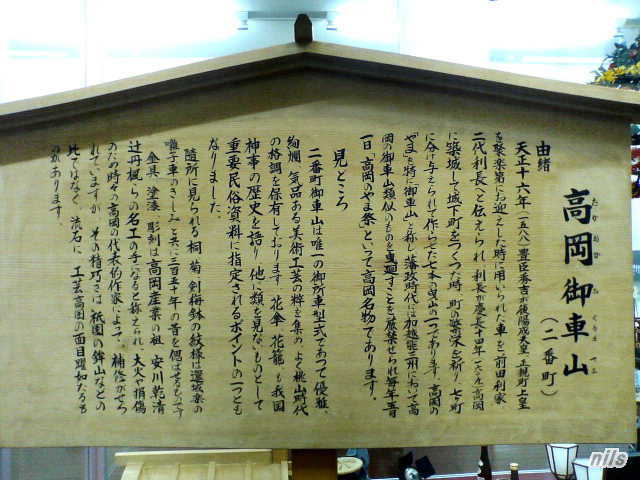 高岡御車山
たかおか み くるま やま
(二番町)
由緒
天正十六年(一五八八)豊臣秀吉が後陽成天皇、正親町上皇
を聚楽第にお迎えした時に用いられた車を前田利家、
二代利長へと伝えられ、利長が慶長十四年(一六〇九)高岡
に築城して城下町をつくった時、町の繁栄を祈り、七ヶ町
に分け与えられて作らった七本の曳山の一つであります。高岡の
やまを特に御車山と称し、藩政時代には加越能三州において高
岡の御車山類似のものを曳廻すことを厳禁せられ毎年五月
一日、高岡のやま祭といって高岡名物であります。
見どころ
二番町御車山は唯一の御所車型式であって、優雅、
絢爛、気品ある美術工芸の粋を集め、よく桃山時代
の格調を保有しております。花傘、花籠も我国
神事の歴史を語り、他に類を見ないものとして
重要民俗資料に指定されるポイントの一つとも
なりました。
随所に見られる桐、菊、剣梅鉢の紋様は還城楽の
囃子、車のきしみと共に三百五十年の昔を偲ばせるものです
金具、塗漆、彫刻は高岡産業の祖、安川乾清
辻丹楓らの名工の手になると称され、大火や損傷
のため時々の高岡の代表的作家によって、補修がせら
れていますが、その精巧さは祇園の鉾山などの
比ではなく、流石に、工芸高岡の面目躍如たるも
のがあります。
nils